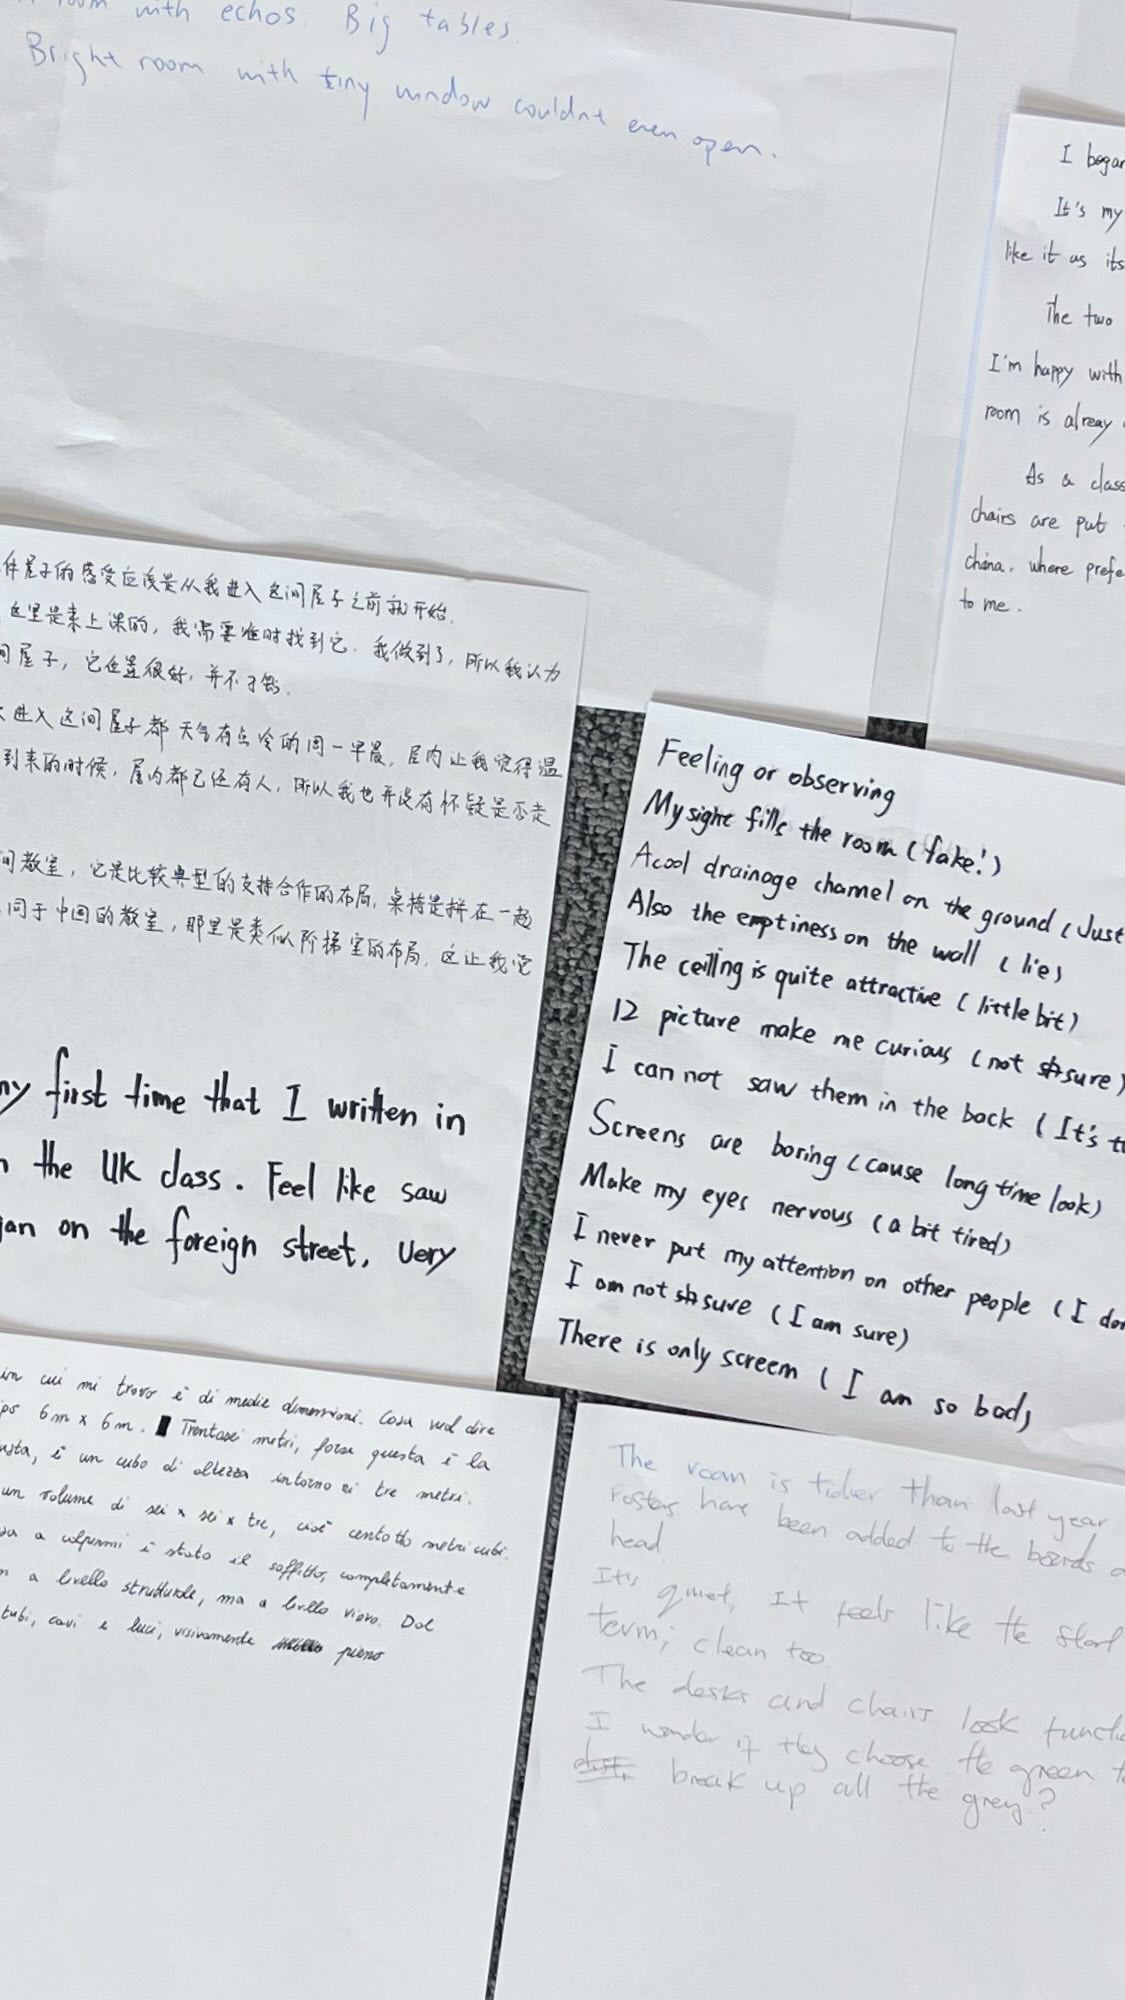 room with echos. Big tables.
Bright room with tiny window couldnt even open.
I began
It's my
like it as its
The two
I'm happy with
room is alreay
As a class
chairs are put
china. where prefe
to me.
件屋子的感受应该是从我进入这间屋子之前就开始.
这里是来上课的, 我需要准时找到它. 我做到了, 所以我认为
间屋子, 它位置很好, 并不
进入这间屋子都 天气有点冷的周一早晨, 屋内让我觉得温
到来的时候, 屋内都已经有人, 所以我也并没有怀疑是否走
间教室, 它是比较典型的支持合作的布局, 桌椅是拼在一起
同于中国的教室, 那里是类似阶梯室的布局. 这让我觉
my first time that I written in
the UK class. Feel like saw
on the foreign street, very
Feeling or observing
My sight fills the room (fake!)
A cool drainage channel on the ground (Just
Also the emptiness on the wall (lie)
The ceiling is quite attractive (little bit)
12 picture make me curious (not sure)
I can not saw them in the back (It's
Screens are boring (cause long time look)
Make my eyes nervous (a bit tired)
I never put my attention on other people (I don
I am not sure (I am sure)
There is only screem (I am so bad)
in cui mi trovo è di medie dimensioni. Cosa vuol dire
6m x 6m. Trentasei metri, forse questa è la
è un cubo di altezza intorno ai tre metri.
un volume di sei x sei x tre, cioè centotto metri cubi.
a colpirmi è stato il soffitto, completamente
a livello strutturale, ma a livello visivo. Dal
tubi, cavi e luci, visivamente pieno
The room is tidier than last year
Posters have been added to the boards
head
It's quiet, It feels like the start
term; clean too.
The desks and chairs look functi
I wonder if they choose the green to
break up all the grey?